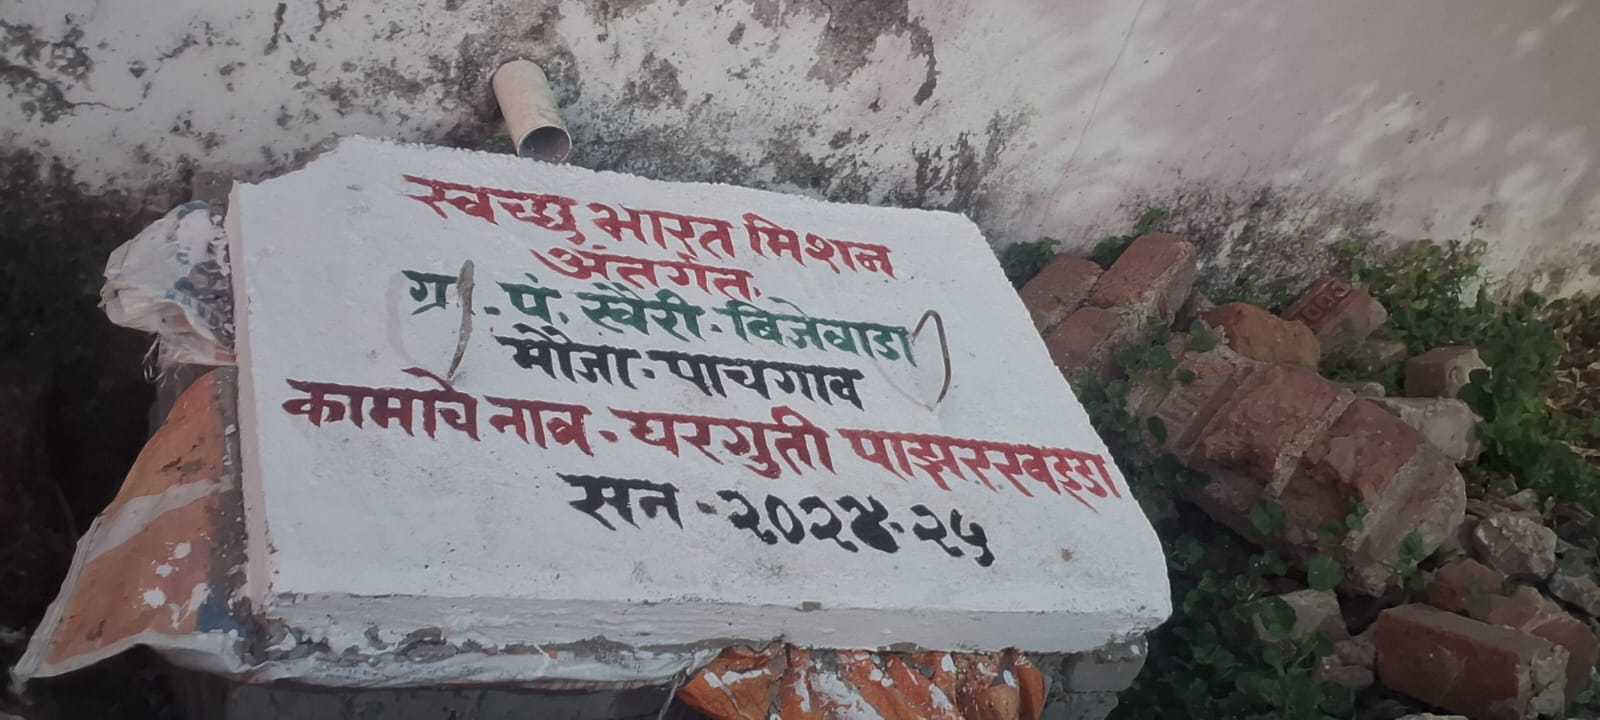 स्वच्छ भारत मिशन
अंतर्गत
ग्रा. पं. खैरी-बिजेवाडा
मौजा-पाचगाव
कामाचे नाव-घरगुती पाझरखड्डा
सन-२०२४-२५